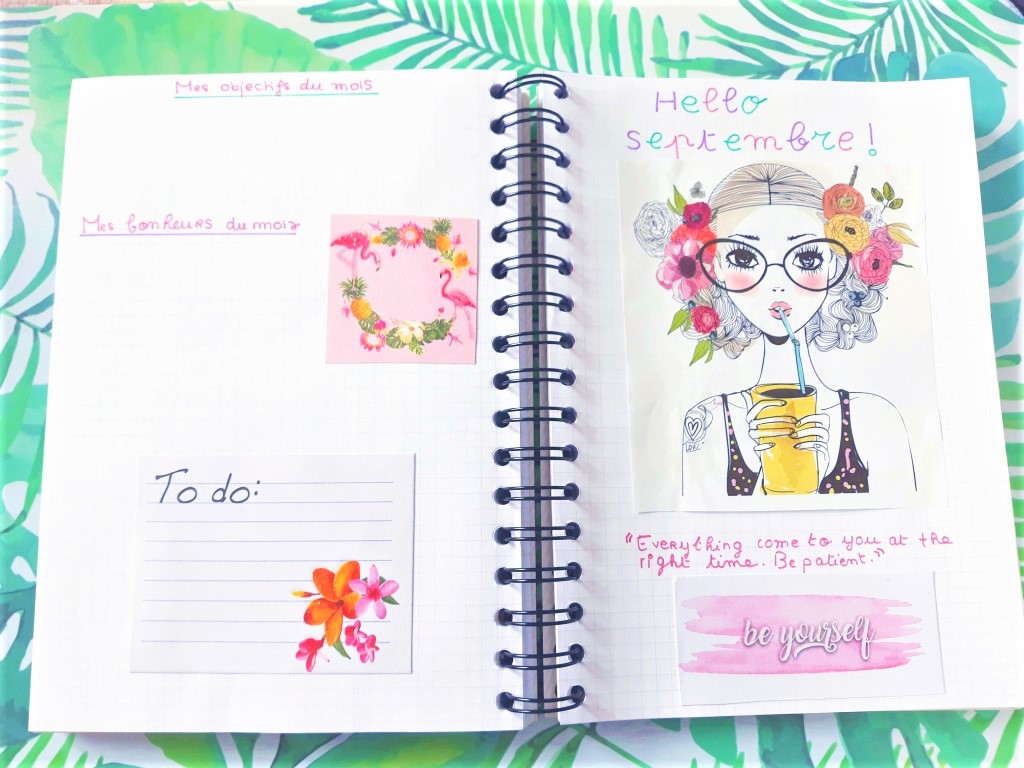 Mes objectifs du mois
Mes bonheurs du mois
To do:
Hello
septembre !
"Everything come to you at the
right time. Be patient."
be yourself